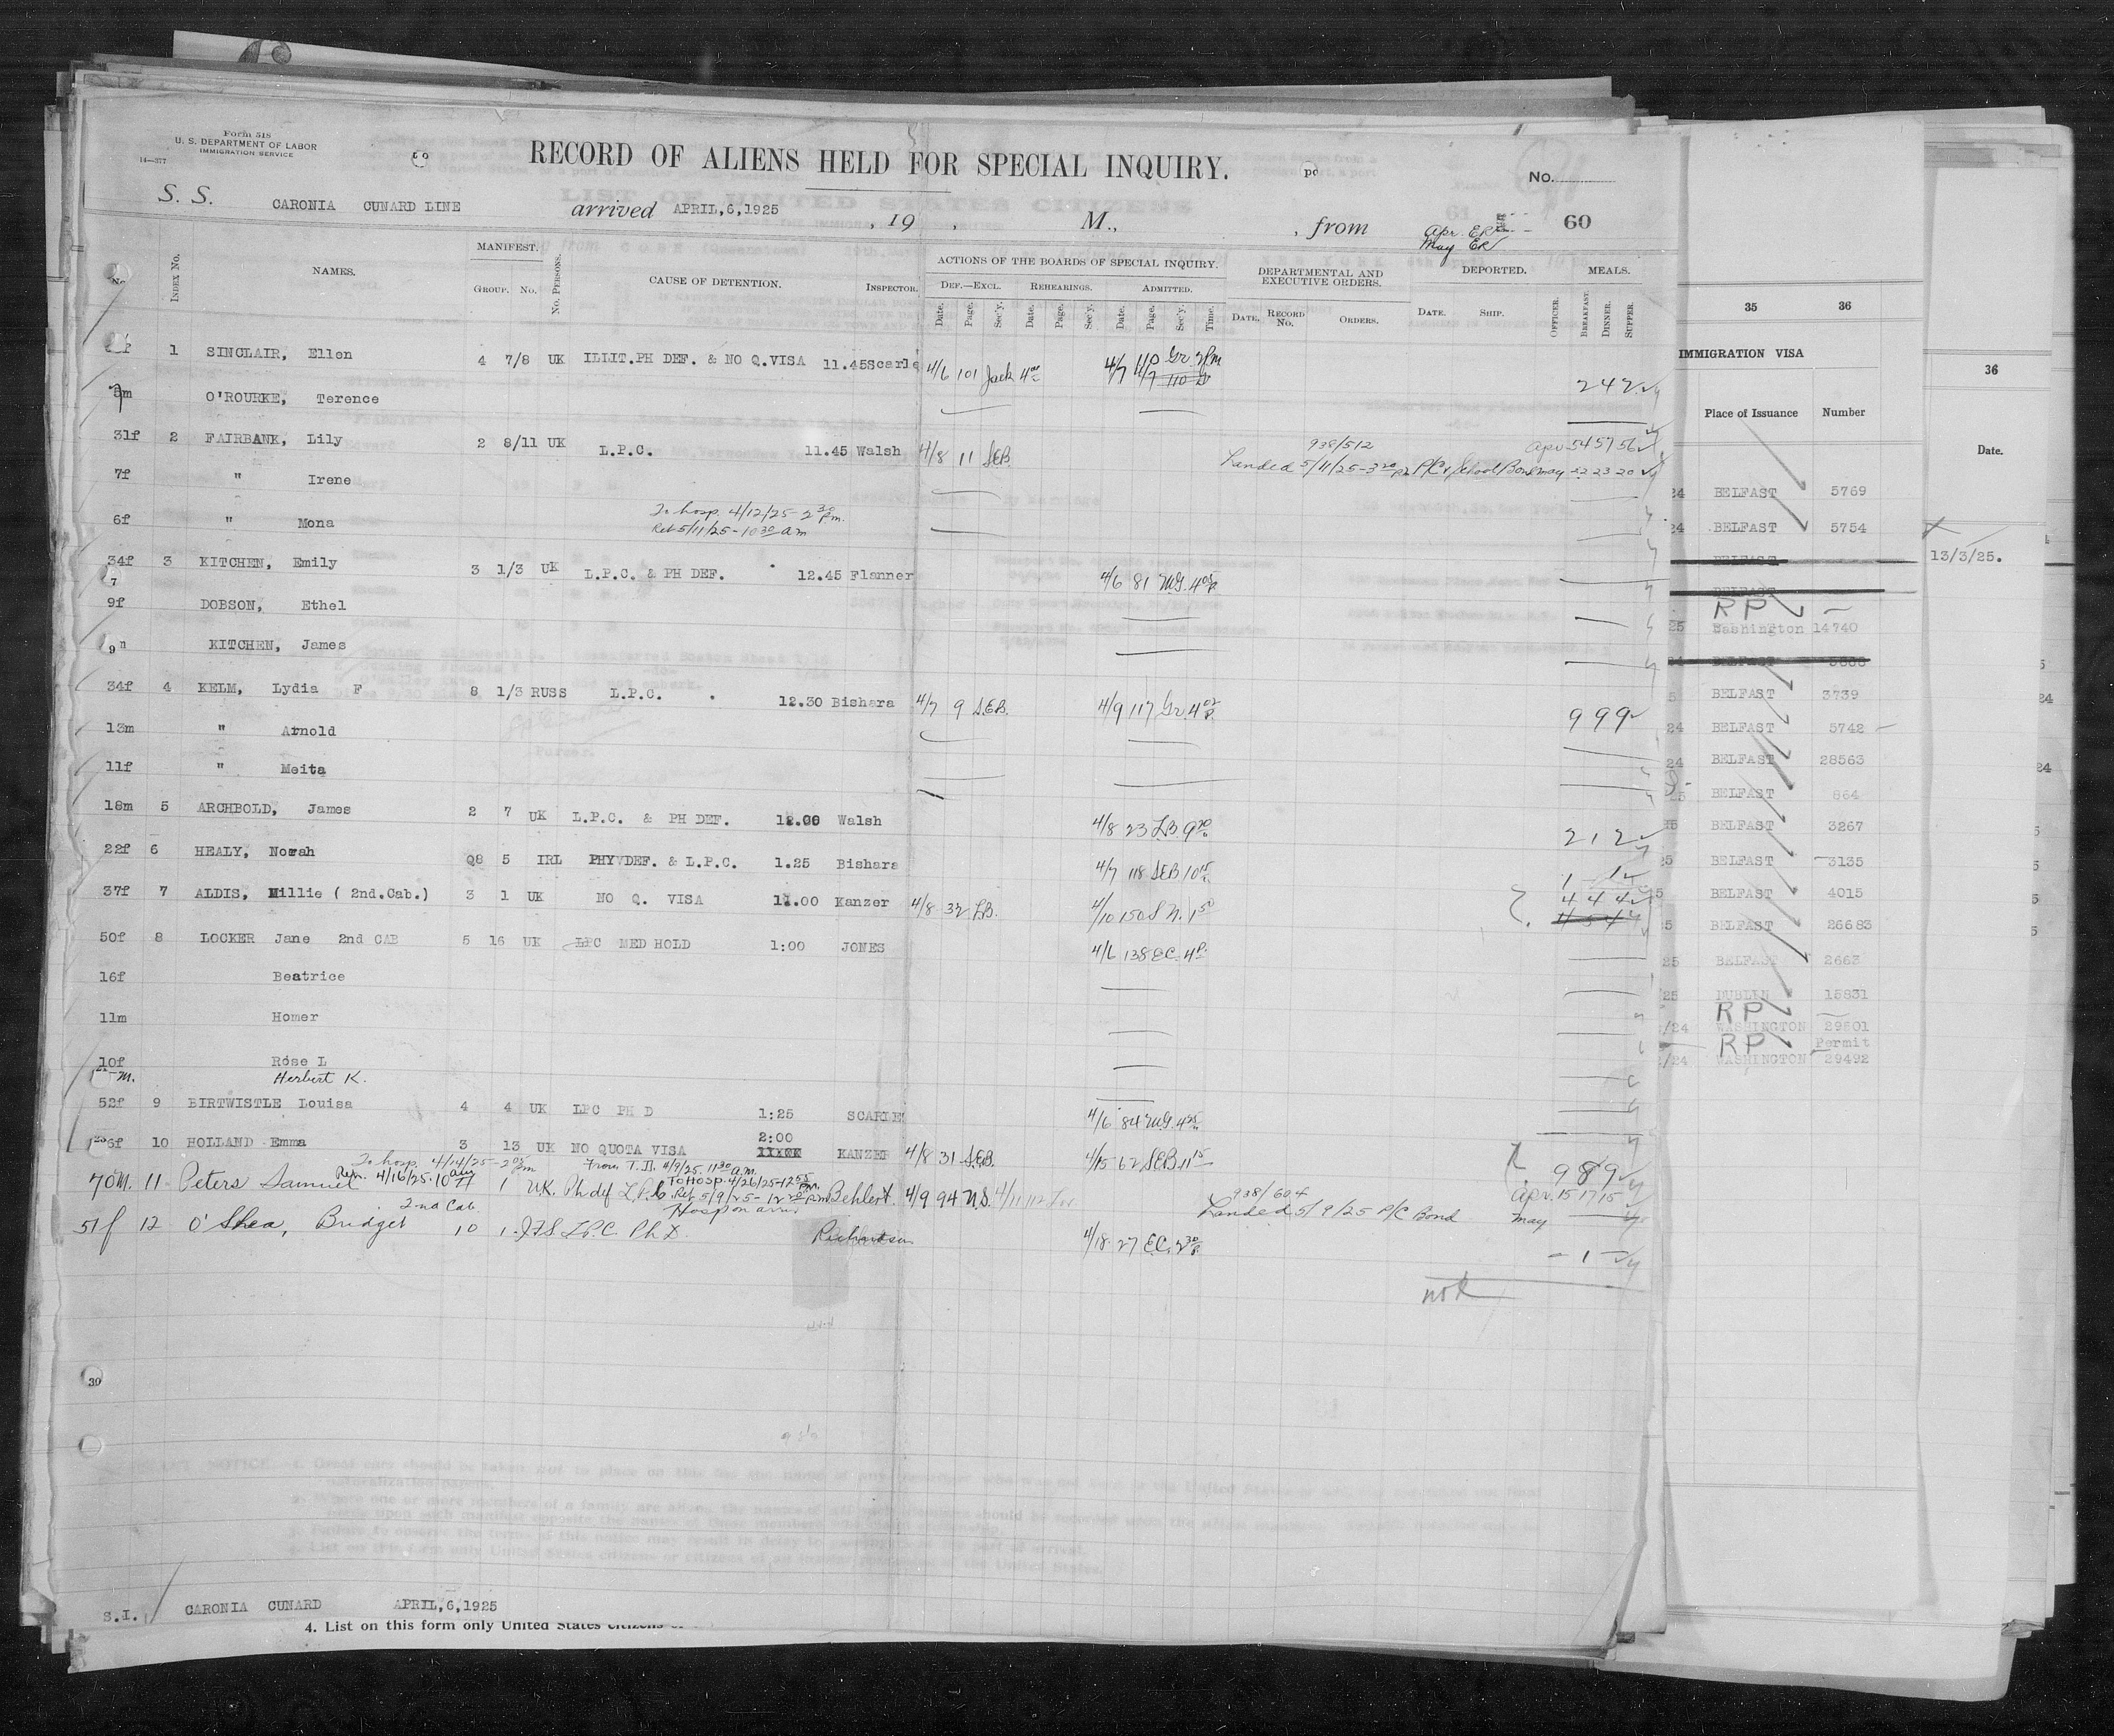 Form 518
U. S. DEPARTMENT OF LABOR
IMMIGRATION SERVICE
14—377
RECORD OF ALIENS HELD FOR SPECIAL INQUIRY.
No.
S. S. CARONIA CUNARD LINE arrived APRIL,6,1925 , 19 , M., , from
Apr. ER
May ER
60
No. INDEX No. NAMES. MANIFEST. GROUP. No. No. PERSONS. CAUSE OF DETENTION. INSPECTOR.
ACTIONS OF THE BOARDS OF SPECIAL INQUIRY.
DEF.—EXCL. REHEARINGS. ADMITTED.
Date. Page. Sec'y. Date. Page. Sec'y. Date. Page. Sec'y. Time.
DEPARTMENTAL AND EXECUTIVE ORDERS.
DATE. RECORD No. ORDERS.
DEPORTED.
DATE. SHIP. OFFICER.
MEALS.
BREAKFAST. DINNER. SUPPER.
1 SINCLAIR, Ellen 4 7/8 UK ILLIT.PH DEF. & NO Q.VISA 11.45 Scarle 4/6 101 Jack 4 4/7 110 Gr. 2 pm
4/7 110
242
O'ROURKE, Terence
31f 2 FAIRBANK, Lily 2 8/11 UK L.P.C. 11.45 Walsh 4/8 11 SEB. 938/512 Apr 54 57 56
Landed 5/11/25-3 20 P/C & School Bond May 22 23 20
7f " Irene
6f " Mona To hosp. 4/12/25- 2 30 pm.
Ret 5/11/25-10 30 am
34f 3 KITCHEN, Emily 3 1/3 UK L.P.C. & PH DEF. 12.45 Flanner 4/6 81 MG. 4 05 P.
9f DOBSON, Ethel
KITCHEN, James
34f 4 KELM, Lydia F 8 1/3 RUSS L.P.C. 12.30 Bishara 4/7 9 S.E.B. 4/9 117 Gr. 4 02 P. 999
13m " Arnold
11f " Meita
18m 5 ARCHBOLD, James 2 7 UK L.P.C. & PH DEF. 12.00 Walsh 4/8 23 LB. 9 20 212
22f 6 HEALY, Norah Q8 5 IRL PHY DEF. & L.P.C. 1.25 Bishara 4/7 118 SEB 10 15
37f 7 ALDIS, Millie ( 2nd.Cab.) 3 1 UK NO Q. VISA 11.00 Kanzer 4/8 32 LB. 4/10 150 S N. 1 50 444
50f 8 LOCKER Jane 2nd CAB 5 16 UK LPC MED HOLD 1:00 JONES 4/6 138 EC. 4 P.
16f Beatrice
11m Homer
10f Rose L
M. Herbert K.
52f 9 BIRTWISTLE Louisa 4 4 UK LPC PH D 1:25 SCARLE 4/6 84 MG. 4 25
10 HOLLAND Emma 3 13 UK NO QUOTA VISA 2:00 KANZER 4/8 31 S.E.B. 4/15 62 SEB 11 15 989
To hosp. 4/14/25-2 05 pm From T.D. 4/9/25. 11 30 a.m.
Ret. 4/16/25.10 am To Hosp. 4/26/25-12 55 pm.
70M. 11 Peters Samuel 1 UK. Ph def L.P.C. Ret 5/9/25- pm Behlert. 4/9 94 N.S. 4/11 112 938/604 Apr. 15 17 15
Landed 5/9/25 P/C Bond May
2nd Cab. Hosp on arriv
51f 12 O'Shea, Bridget 10 1 IFS L.P.C. Ph D. Richardson 4/18 27 E.C. 2 30 P. – 1 –
not
30
S.I. CARONIA CUNARD APRIL,6,1925
4. List on this form only United States citizens or
35 36
IMMIGRATION VISA
Place of Issuance Number
24 BELFAST 5769
24 BELFAST 5754
BELFAST
BELFAST
RP —
25 Washington 14740
24 BELFAST
5 BELFAST 3739
24 BELFAST 5742
24 BELFAST 28563
25 BELFAST 864
25 BELFAST 3267
25 BELFAST 3135
25 BELFAST 4015
25 BELFAST 26683
25 BELFAST 2663
25 DUBLIN 15831
RP —
/24 WASHINGTON 29801
RP Permit
/24 WASHINGTON 29492
36
Date.
13/3/25.
24
24